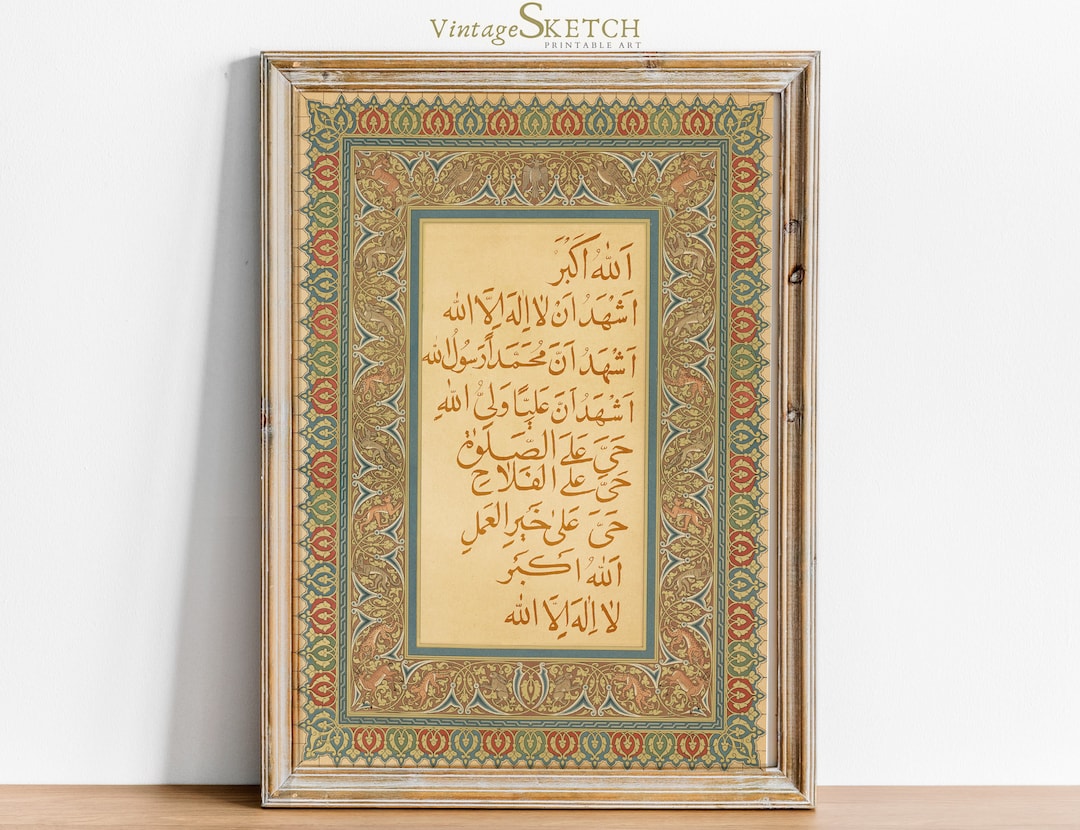 VintageSKETCH
PRINTABLE ART
اَللّٰهُ اَكْبَرَ
اَشْهَدُ اَنْ لا اِلٰهَ اِلَّا اللّٰه
اَشْهَدُ اَنَّ مُحَمَّدَاً رَسُولُ اللّٰه
اَشْهَدُ اَنَّ عَلِيًّا وَلِيُّ اللّٰهِ
حَيَّ عَلَى الصَّلَوٰة
حَيَّ عَلَى الفَلَاحِ
حَيَّ عَلىٰ خَيرِ العَمَلِ
اَللّٰهُ اَكبَر
لا اِلٰهَ اِلَّا اللّٰه